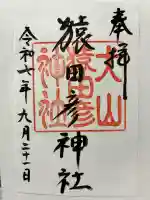 奉拝
犬山
猿田彦
神社
猿田彦神社
令和七年九月二十一日